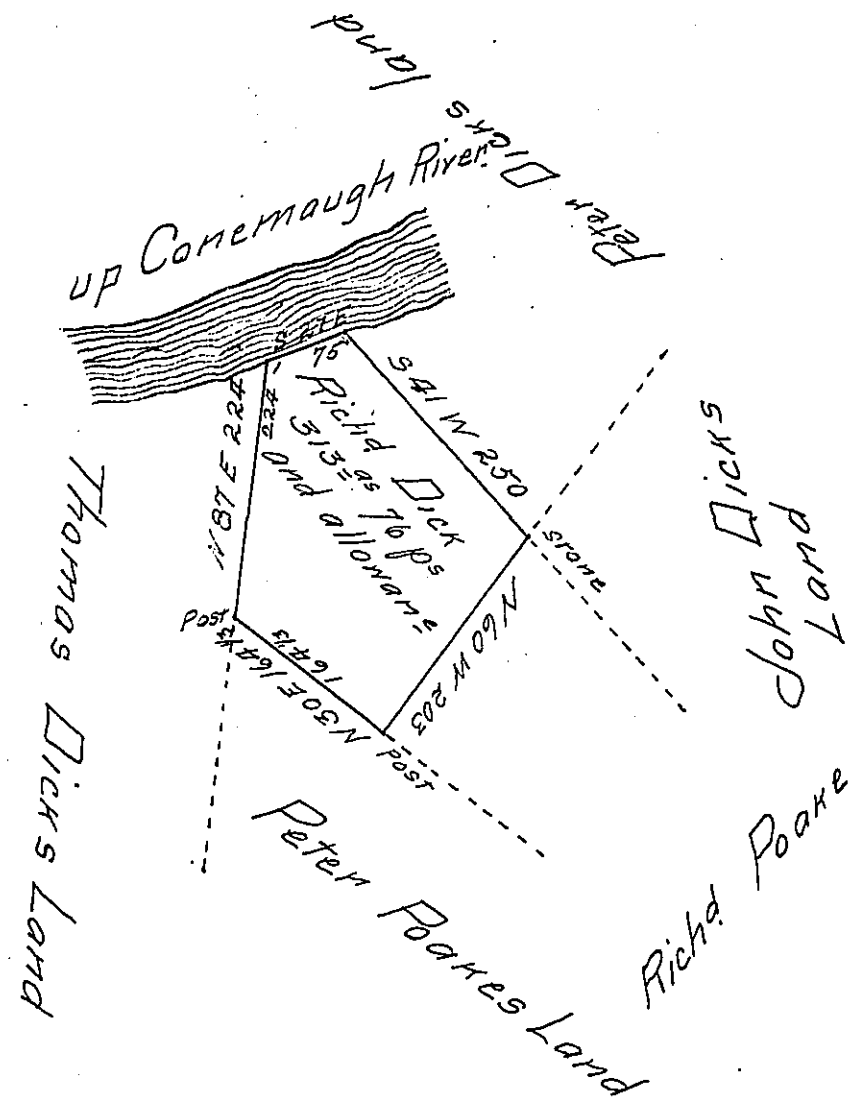 Peter Dicks
land
up Conemaugh River
S 27 E
75
S 41 W 250
N 87 E 224
224
Richd Dick
313 as 76 ps
and allowance
stone
John Dicks
Land
N 60 W 203
Post
N 30 E 164 1/2
164 1/2
Post
Thomas Dicks Land
Peter Poakes Land
Richd Poake